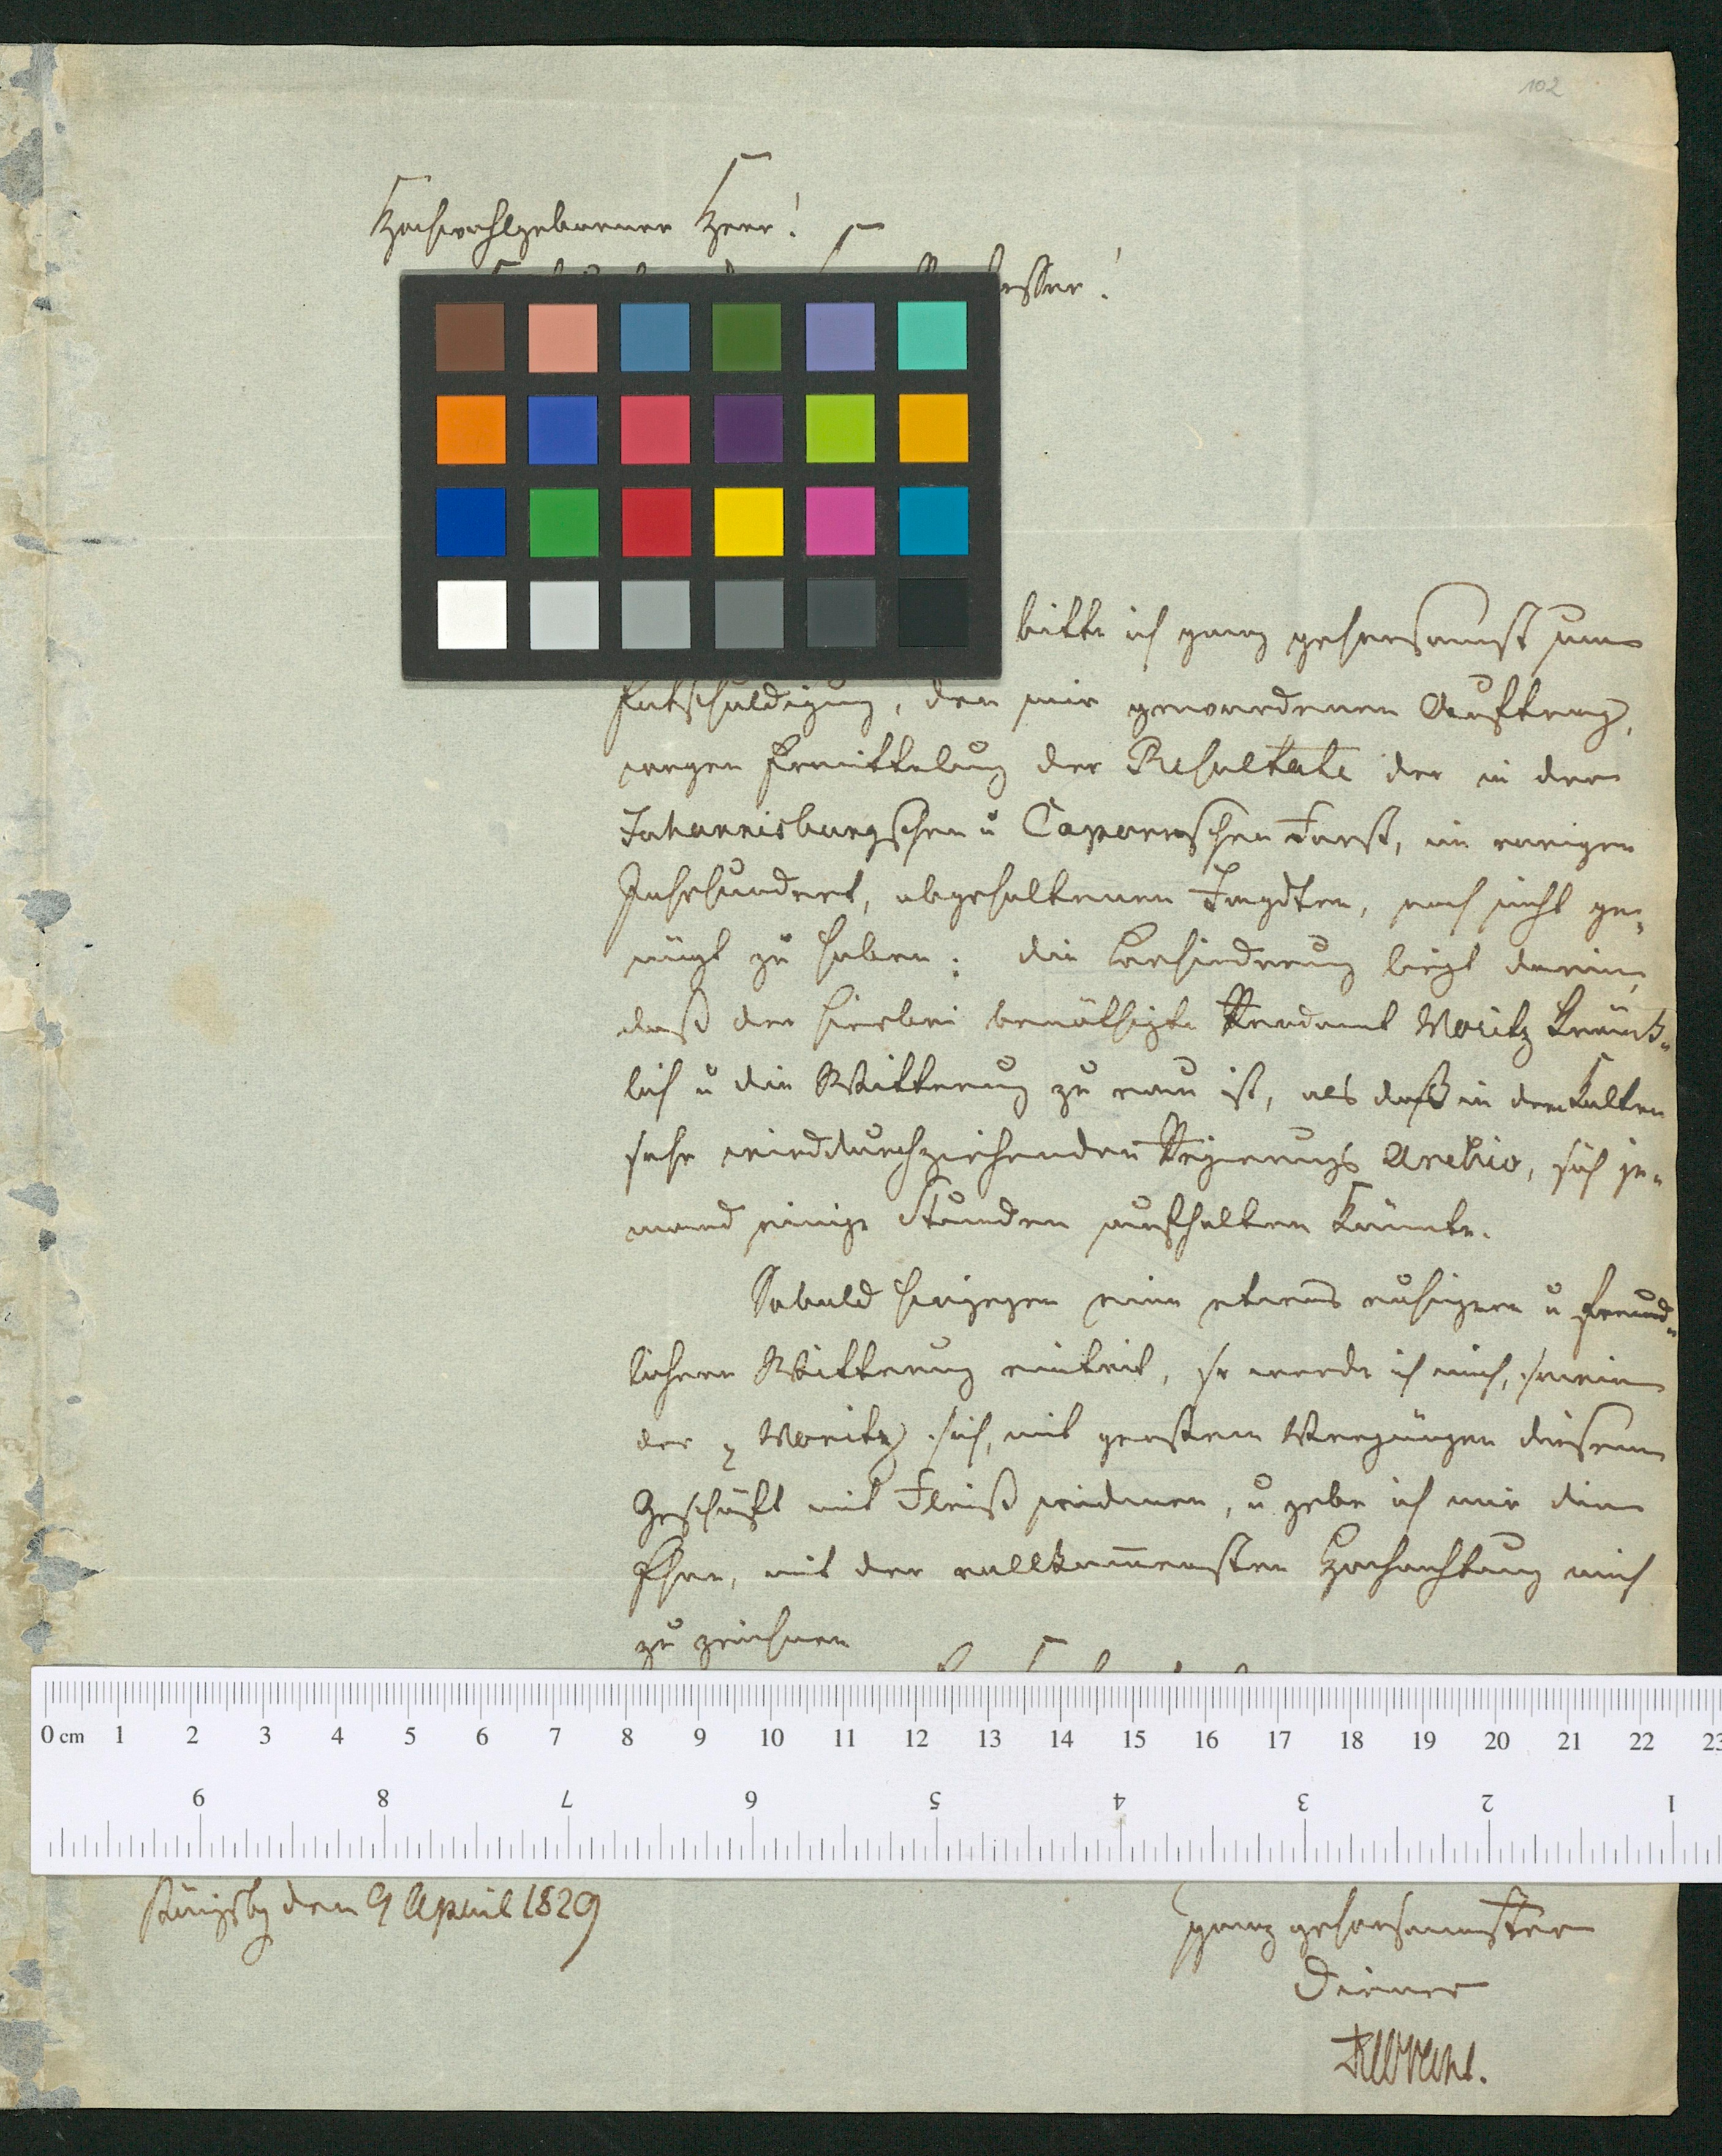 102
Hochwohlgeborner Herr!
bitte ich ganz gehorsamst um
Entschuldigung, den mir gewordenen Auftrag,
wegen Ermittelung der Resultate der in der
Johannisburgschen u Caporrnschen Forst, im vorigen
Jahrhundert, abgehaltenen Jagdten, noch nicht ge-
nügt zu haben; die Verhinderung liegt darin,
daß der hierbei benöthigte Rendant Moritz kränk-
lich u die Witterung zu rau ist, als daß in dem kalten
sehr winddurchziehenden Regierungs Archiv, sich je-
mand einige Stunden aufhalten könnte.
Sobald hingegen eine etwas ruhigere u freund-
lichere Witterung eintrit, so werde ich mich, sowie
der Moritz sich, mit großem Vergnügen diesem
Geschäft mit Fleiß widmen, u gebe ich mir die
Ehre, mit der vollkom̅ensten Hochachtung mich
zu zeichnen
0 cm 1 2 3 4 5 6 7 8 9 10 11 12 13 14 15 16 17 18 19 20 21 22 23
9 8 7 6 5 4 3 2 1
Königsbg den 9 April 1829
ganz gehorsamster
Diener